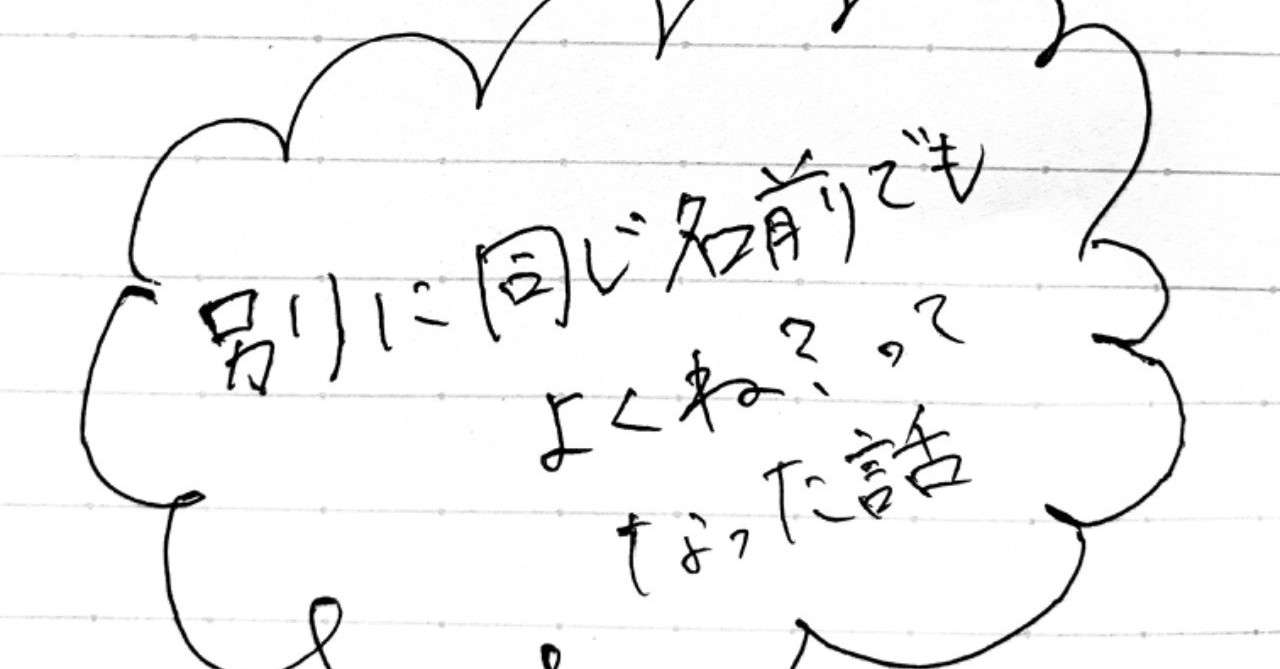 別に同じ名前でも
よくね?って
なった話